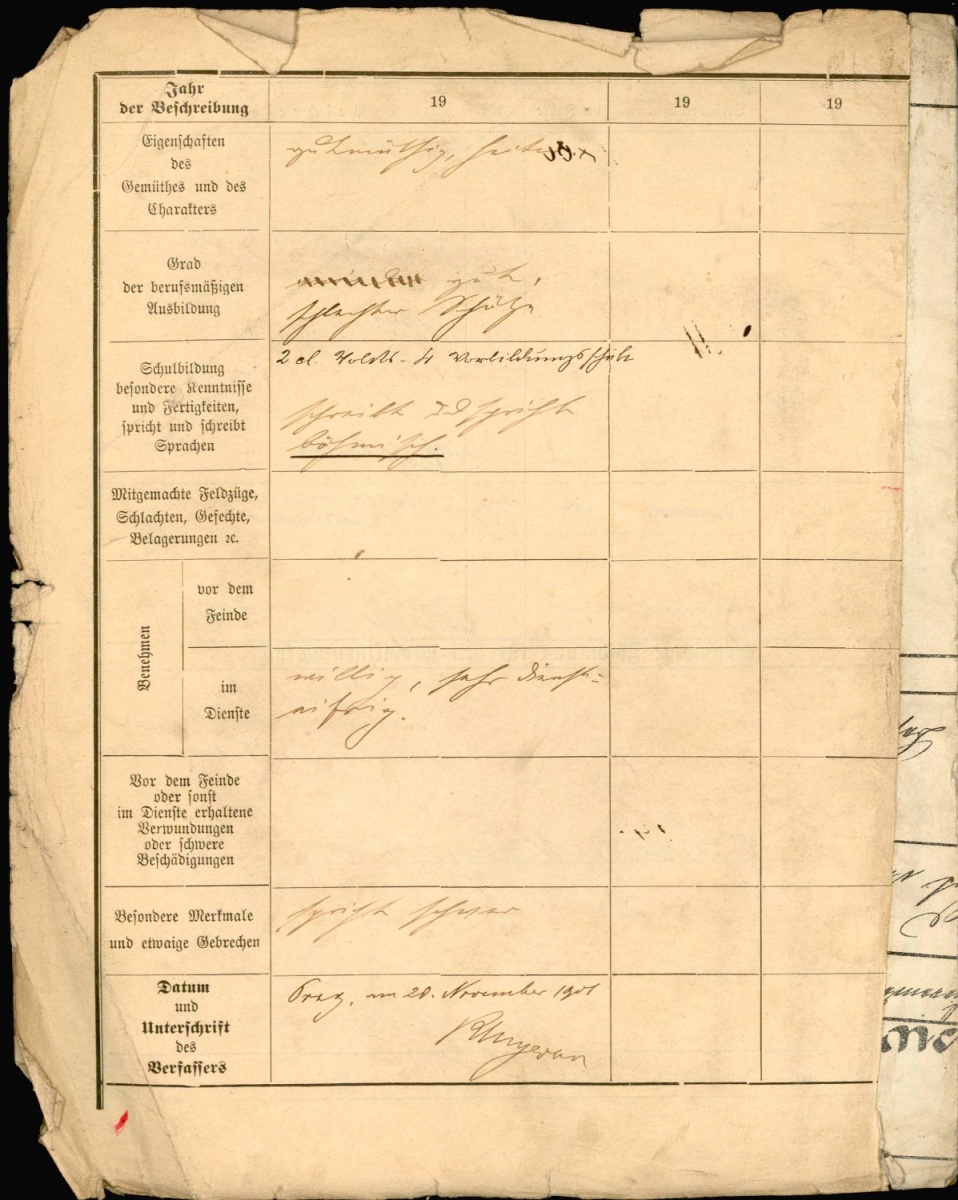 Jahr
der Beschreibung
19
19
19
Eigenschaften
des
Gemüthes und des
Charakters
gutmüthig, heiter
Grad
der berufsmäßigen
Ausbildung
gut,
schlechter Schütze
Schulbildung
besondere Kenntnisse
und Fertigkeiten,
spricht und schreibt
Sprachen
2 cl. Volks- u Vorbildungsschule
schreibt spricht
böhmisch.
Mitgemachte Feldzüge,
Schlachten, Gefechte,
Belagerungen ꝛc.
Benehmen
vor dem
Feinde
im
Dienste
willig, sehr dienst=
eifrig.
Vor dem Feinde
oder sonst
im Dienste erhaltene
Verwundungen
oder schwere
Beschädigungen
Besondere Merkmale
und etwaige Gebrechen
spricht schwer
Datum
und
Unterschrift
des
Verfassers
Prag, am 28. November 1901